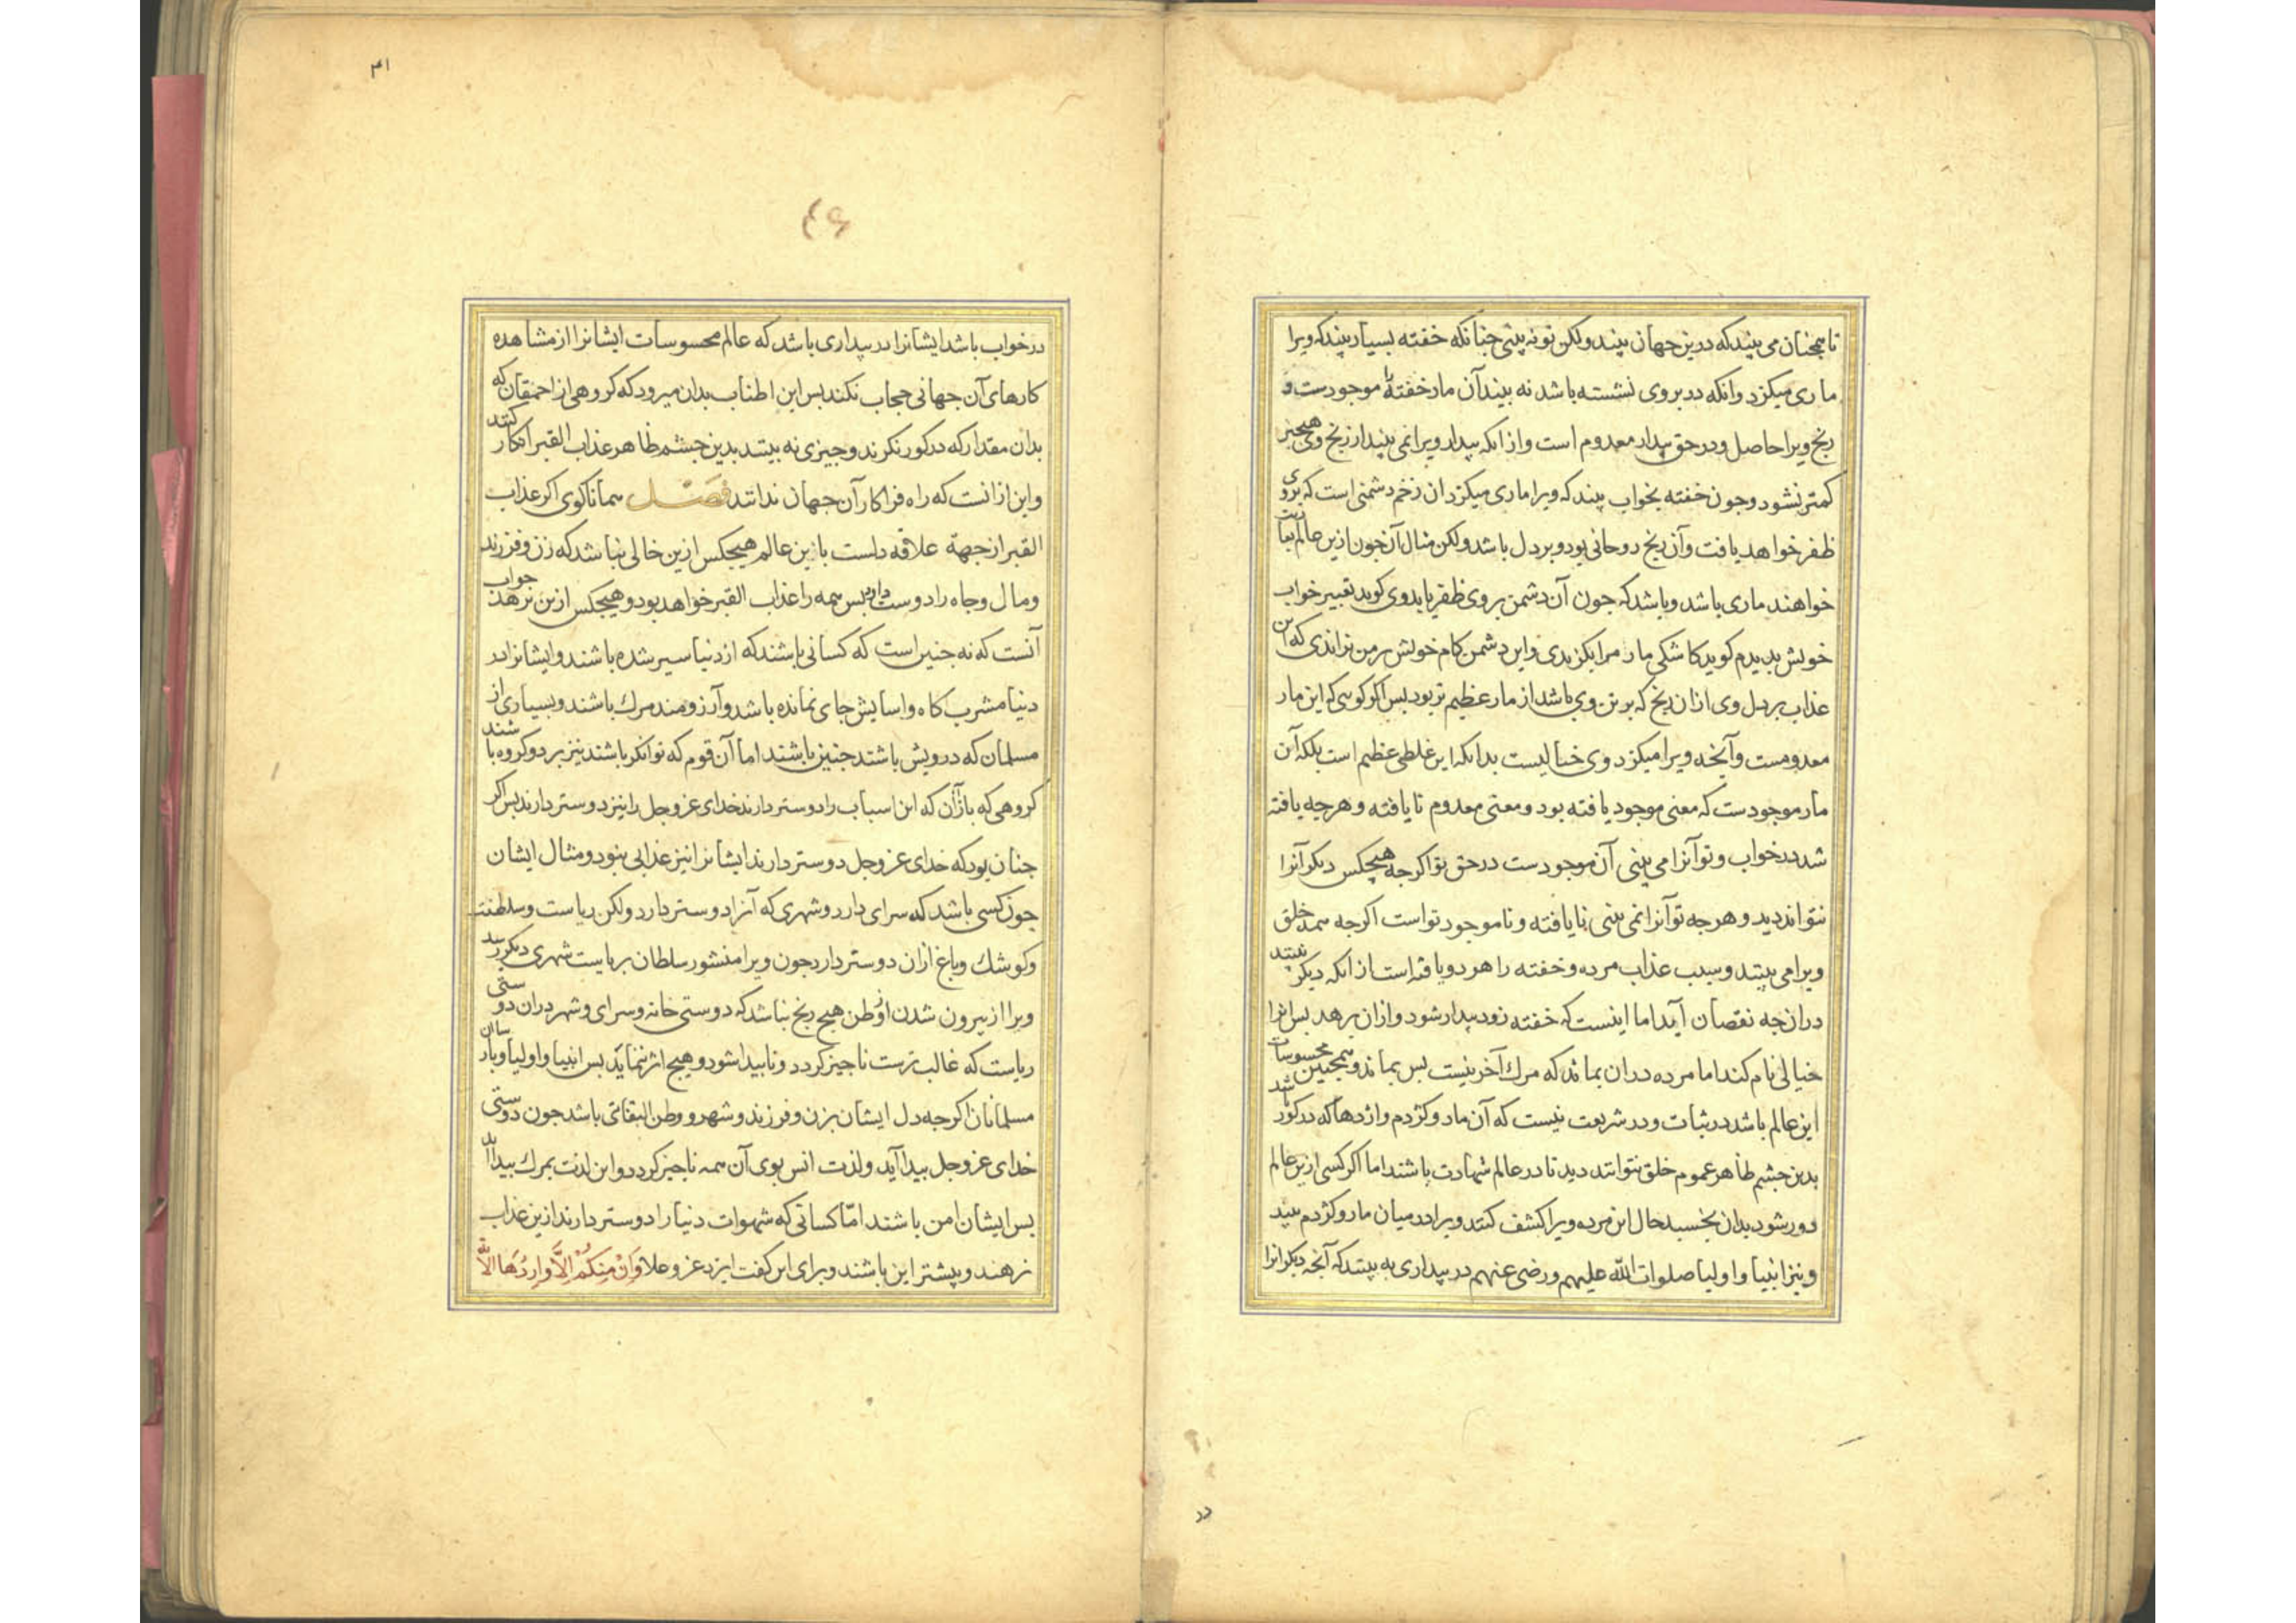 تا همچنان می بیند که درین جهان بیند ولکن تو نه بینی چنانکه خفته بسیار بیند که ویرا
ماری میکزد و انکه در بر وی نشسته باشد نه بیند آن مار خفته را موجودست و
رنج ویرا حاصل و در حق بیدار معدوم است و از انکه بیدار ویرا نمی بیند از رنج وی هیچیز
کمتر نشود و جون خفته بخواب بیند که ویرا ماری میکزد ان زخم دشمنی است که بروی
ظفر خواهد یافت و آن رنج روحانی بود و بر دل باشد ولکن مثال آن خون ازین عالم بیا
خواهند ماری باشد و باشد که جون آن دشمن بر وی ظفر یابد وی کوید تعبیر خواب
خویش بدیدم کوید کاشکی مار مرا بکزیدی و این دشمن کام خویش بر من نراندی که این
عذاب بر دل وی از ان رنج که بر تن وی باشد از مار عظیم تر بود بس اکر کویی که این مار
معدومست و آنچه ویرا میکزد وی خیالیست بدانکه این غلطی عظیم است بلکه آن
مار موجودست که معنی موجود یافته بود و معنی معدوم نا یافته و هرجه یافته
شد در خواب و تو آنرا می بینی آن موجودست در حق تو اکرجه هیچکس دیکر آنرا
نتواند دید و هرجه تو آنرا نمی بینی نایافته و ناموجود تو است اکرجه همه خلق
ویرا می بینند و سبب عذاب مرده و خفته را هر دو یافته است از انکه دیکر نبینند
در ان چه نقصان آید اما اینست که خفته زود بیدار شود و از ان برهد بس انرا
خیالی نام کنند اما مرده در ان بماند که مرك آخر نیست بس بماند و همچنین محسوسات
این عالم باشد در ثبات و در شریعت نیست که آن مار و کژدم و اژدها که در کور باشد
بدین جشم ظاهر عموم خلق بتوانند دید تا در عالم شهادت باشند اما اکر کسی ازین عالم
دور شود بدان بخسبد حال این مرده ویرا کشف کنند ویرا در میان مار و کژدم بیند
و نیز انبیا و اولیا صلوات الله علیهم و رضی عنهم در بیداری به بینند که آنچه دیکرانرا
۴۱
۴۶
در خواب باشد ایشانرا در بیداری باشد که عالم محسوسات ایشانرا از مشاهده
کارهای آن جهانی حجاب نکند بس این اطناب بدان میرود که کروهی از احمقان که
بدان مقدار که در کور نکرند و چیزی نه بینند بدین جشم ظاهر عذاب القبر انکار کنند
و این از انست که راه فرا کار آن جهان ندانند فصل همانا کوی اکر عذاب
القبر از جهة علاقه دلست بازین عالم هیچکس ازین خالی نباشد که زن و فرزند
و مال و جاه را دوست دارد بس همه را عذاب القبر خواهد بود و هیچکس ازین نرهد جواب
آنست که نه جنین است که کسانی باشند که از دنیا سیر شده باشند و ایشانرا در
دنیا مشرب کاه و اسایش جای نمانده باشد و آرزومند مرك باشند و بسیاری از
مسلمان که درویش باشند جنین باشند اما آن قوم که توانکر باشند نیز بر دو کروه باشند
کروهی که باز آن که این اسباب را دوستر دارند خدای عز وجل را نیز دوستر دارند بس اکر
جنان بود که خدای عز وجل دوستر دارند ایشانرا نیز عذابی نبود و مثال ایشان
جون کسی باشد که سرای دارد و شهری که آنرا دوستر دارد ولکن ریاست و سلطنت
و کوشك و باغ از ان دوستر دارد جون ویرا منشور سلطان بریاست شهری دیکر رسد
ویرا از بیرون شدن از وطن هیچ رنج نباشد که دوستی خانه و سرای و شهر در ان دوستی
ریاست که غالب ترست ناجیز کردد و نابیدا شود و هیچ اثر ننماید بس انبیا و اولیا و بارسایان
مسلمانان اکرجه دل ایشان بزن و فرزند و شهر و وطن التفاتی باشد جون دوستی
خدای عز وجل بیدا آید و لذت انس بوی آن همه ناجیز کردد و این لذت بمرك بیدا آید
بس ایشان امن باشند امّا کسانی که شهوات دنیا را دوستر دارند ازین عذاب
نرهند و بیشتر این باشند و برای این کفت ایزد عز و علا وَاِنْ مِنْكُمْ اِلَّا وَارِدُهَا الآیه